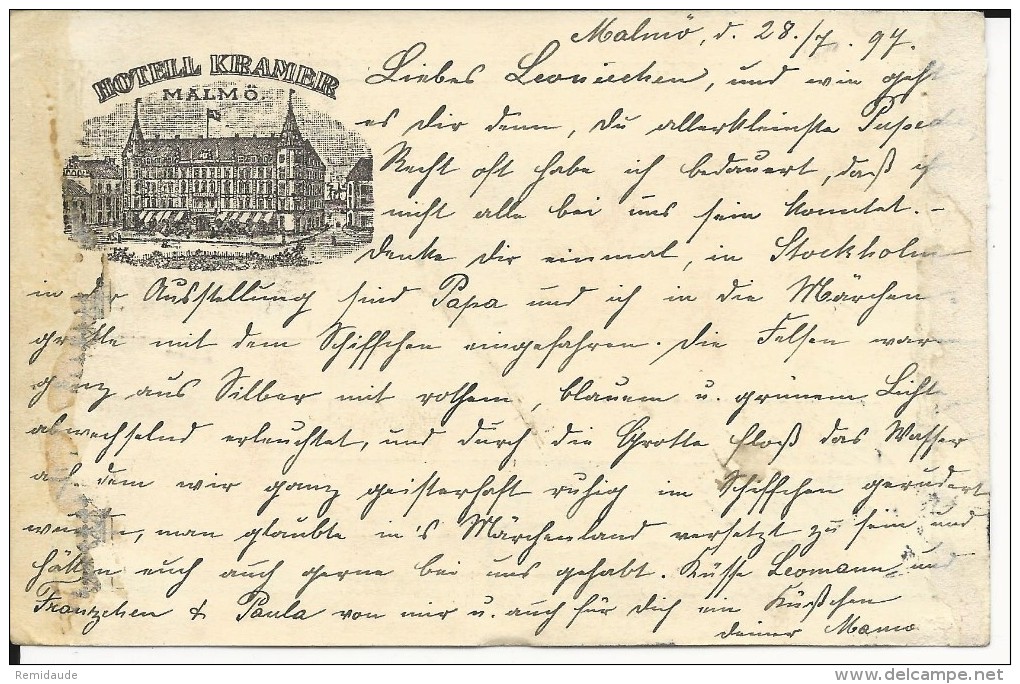 Malmö, d. 28./7. 97.
HOTELL KRAMER
MALMÖ.
Liebes Leonichen, und wie geht
es Dir denn, Du allerkleinste
Recht oft habe ich bedauert, daß ih
nicht alle bei uns sein konntet. –
Denke Dir einmal, in Stockholm
in der Ausstellung sind Papa und ich in die Märchen
grotte mit dem Schiffchen eingefahren. Die Felsen war
ganz aus Silber mit rothem, blauem u. grünem Licht
abwechselnd erleuchtet, und durch die Grotte floß das Wasser
auf dem wir ganz geisterhaft ruhig im Schiffchen gerudert
wurden, man glaubte in's Märchenland versetzt zu sein und
hätten euch auch gerne bei uns gehabt. Küsse Leomann, und
Fränzchen & Paula von mir u. auch für Dich ein Küßchen
deiner Mama
Remidaude
delcampe.net